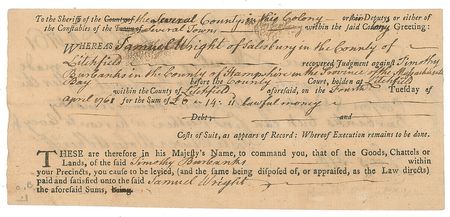 To the Sheriff of the County of the several County's in this Colony or his Deputy, or either of
the Constables of the Town of Several Towns within the said Colony Greeting:
WHEREAS Samuel Wright of Salsbury in the County of
Litchfield recovered Judgment against Timothy
Burbanks in the County of Hampshire in the Province of the Massachusets
Bay before the County Court, holden at Litchfield
within the County of Litchfield aforesaid, on the Fourth Tuesday of
April 1768 for the Sum of £0 = 14 = 11 lawful money
Debt; and
Costs of Suit, as appears of Record: Whereof Execution remains to be done.
THESE are therefore in his Majesty's Name, to command you, that of the Goods, Chattels or
Lands, of the said Timothy Burbanks within
your Precincts, you cause to be levied, (and the same being disposed of, or appraised, as the Law directs)
paid and satisfied unto the said Samuel Wright
the aforesaid Sums, being